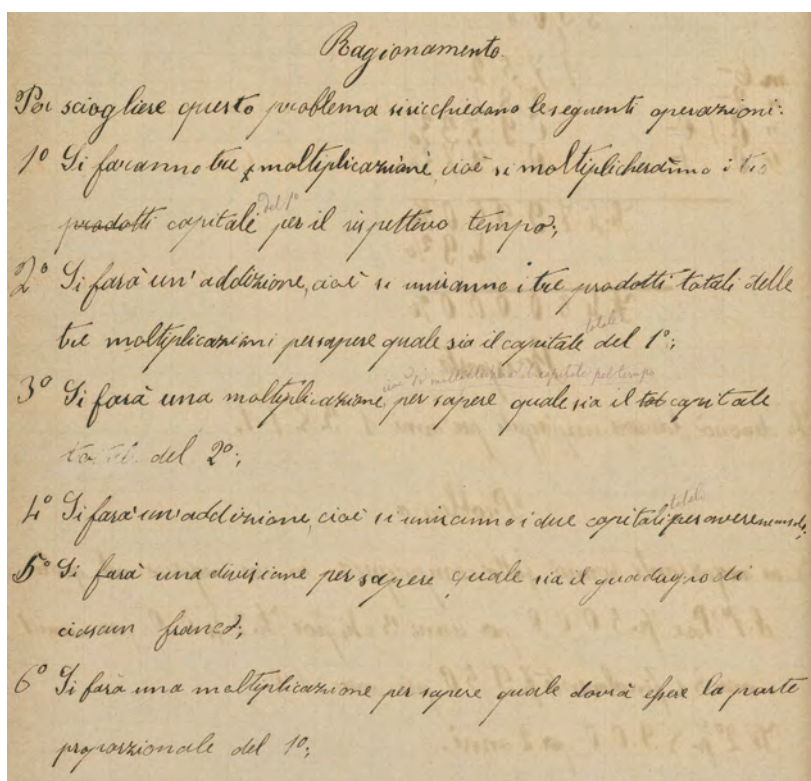 Ragionamento
Per sciogliere questo problema si richiedano le seguenti operazioni:
1º Si faranno tre moltiplicazioni, cioè si moltiplicheranno i tre
prodotti capitali del 1º per il rispettivo tempo;
2º Si farà un' addizione, cioè si uniranno i tre prodotti totali delle
tre moltiplicazioni per sapere quale sia il capitale totale del 1º;
cioè si moltiplicherà il capitale pel tempo
3º Si farà una moltiplicazione, per sapere quale sia il tot capitale
totale del 2º;
4º Si farà un' addizione, cioè si uniranno i due capitali totali per averne un solo;
5º Si farà una divisione per sapere quale sia il guadagno di
ciascun franco;
6º Si farà una moltiplicazione per sapere quale dovrà essere la parte
proporzionale del 1º;